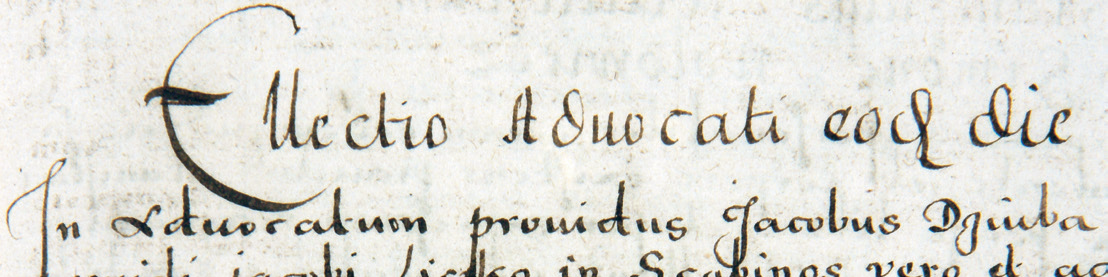 Ellectio Advocati eod die
In Advocatum providus Jacobus Dziuba
jacobi in Scabinos vero et